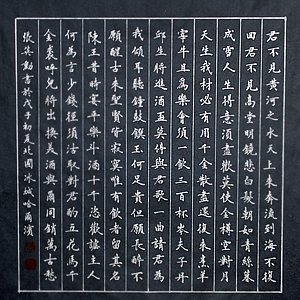 君不見黃河之水天上來奔流到海不復
回君不見高堂明鏡悲白髮朝如青絲暮
成雪人生得意須盡歡莫使金樽空對月
天生我材必有用千金散盡還復來烹羊
宰牛且為樂會須一飲三百杯岑夫子丹
邱生將進酒杯莫停與君歌一曲請君為
我傾耳聽鐘鼓饌玉何足貴但願長醉不
願醒古來聖賢皆寂寞惟有飲者留其名
陳王昔時宴平樂斗酒十千恣歡謔主人
何為言少錢徑須沽取對君酌五花馬千
金裘呼兒將出換美酒與爾同銷萬古愁
張英勳書於戊子初夏北國冰城哈爾濱